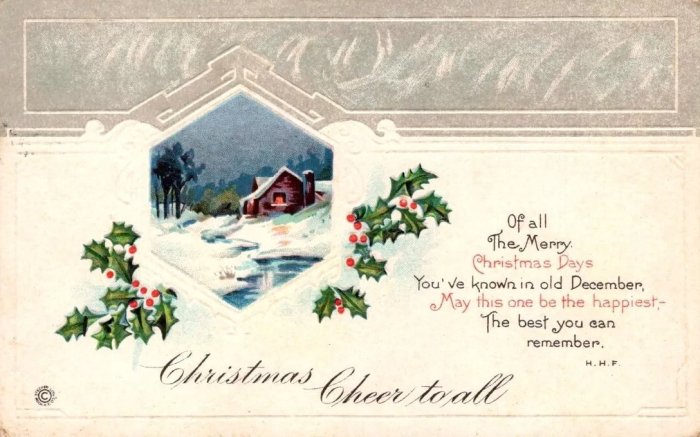 Of all
The Merry.
Christmas Days
You've known in old December,
May this one be the happiest,-
The best you can
remember.
H. H. F.
Christmas Cheer to all
©